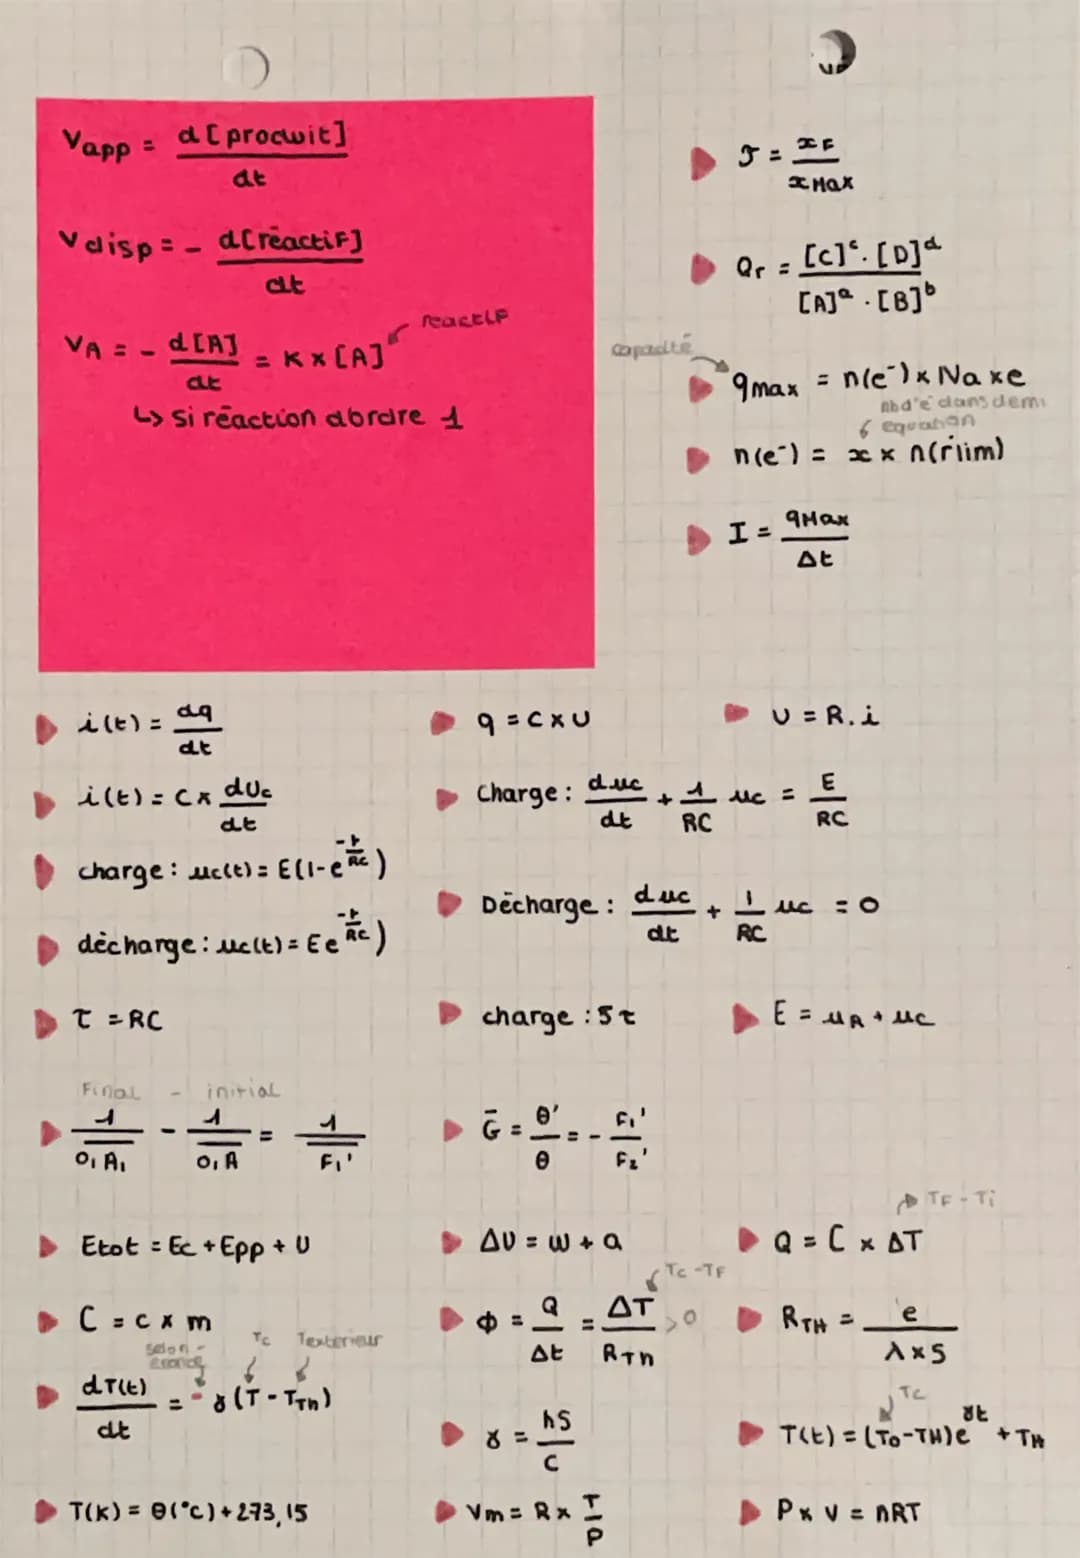 Vapp = d[produit]/dt
Vdisp = - d[réactif]/dt
VA = - d[A]/dt = K x [A] réactif
↳ si réaction d'ordre 1
τ = xF/xMax
Qr = [C]ᶜ · [D]ᵈ / [A]ᵃ · [B]ᵇ
capacité
qmax = n(e⁻) x Na x e
nb d'e⁻ dans demi
équation
n(e⁻) = x x n(rlim)
I = qMax/Δt
i(t) = dq/dt
q = C x U
U = R.i
i(t) = C x dUc/dt
Charge : duc/dt + 1/RC uc = E/RC
charge : uc(t) = E(1-e^(-t/RC))
Décharge : duc/dt + 1/RC uc = 0
décharge : uc(t) = Ee^(-t/RC))
τ = RC
charge : 5τ
E = uR + uc
Final - initial
1/O₁A₁ - 1/O₁A = 1/F₁'
G = θ'/θ = - F₁'/F₂'
TF - Ti
Etot = Ec + Epp + U
ΔU = W + Q
Q = C x ΔT
Tc - TF
C = c x m
Φ = Q/Δt = ΔT/RTh >0
RTH = e/λ x S
selon
énoncé
Tc Textérieur
dT(t)/dt = - γ(T - TTh)
γ = hS/C
Tc
T(t) = (T₀ - TH)e^γt + TH
T(K) = θ(°C) + 273,15
Vm = R x T/P
P x V = nRT